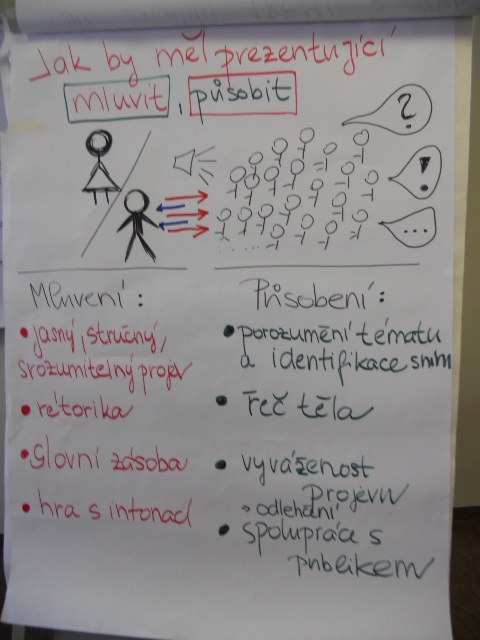 Jak by měl prezentující
mluvit, působit
?
!
...
Mluvení:
• jasný, stručný,
srozumitelný projev
• rétorika
• slovní zásoba
• hra s intonací
Působení:
• porozumění tématu
a identifikace s ním
• řeč těla
• vyváženost
projevu
» odlehční
• spolupráce s
publikem